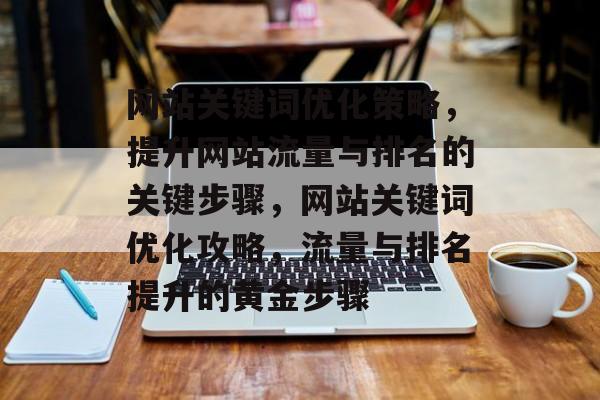 网站关键词优化策略，
提升网站流量与排名的
关键步骤，网站关键词
优化攻略，流量与排名
提升的黄金步骤